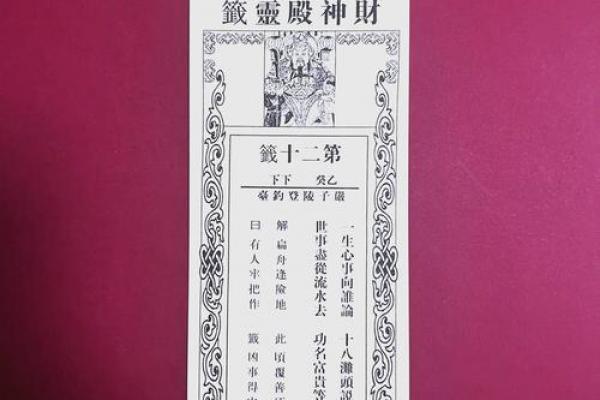 財神殿靈籤
第二十籤
乙癸 下下
嚴子陵登釣臺
一生心事向誰論 十八灘頭説
世事盡從流水去 功名富貴等
解 扁舟逢險地 此頃覆善
曰 有人牢把作 籤凶事得